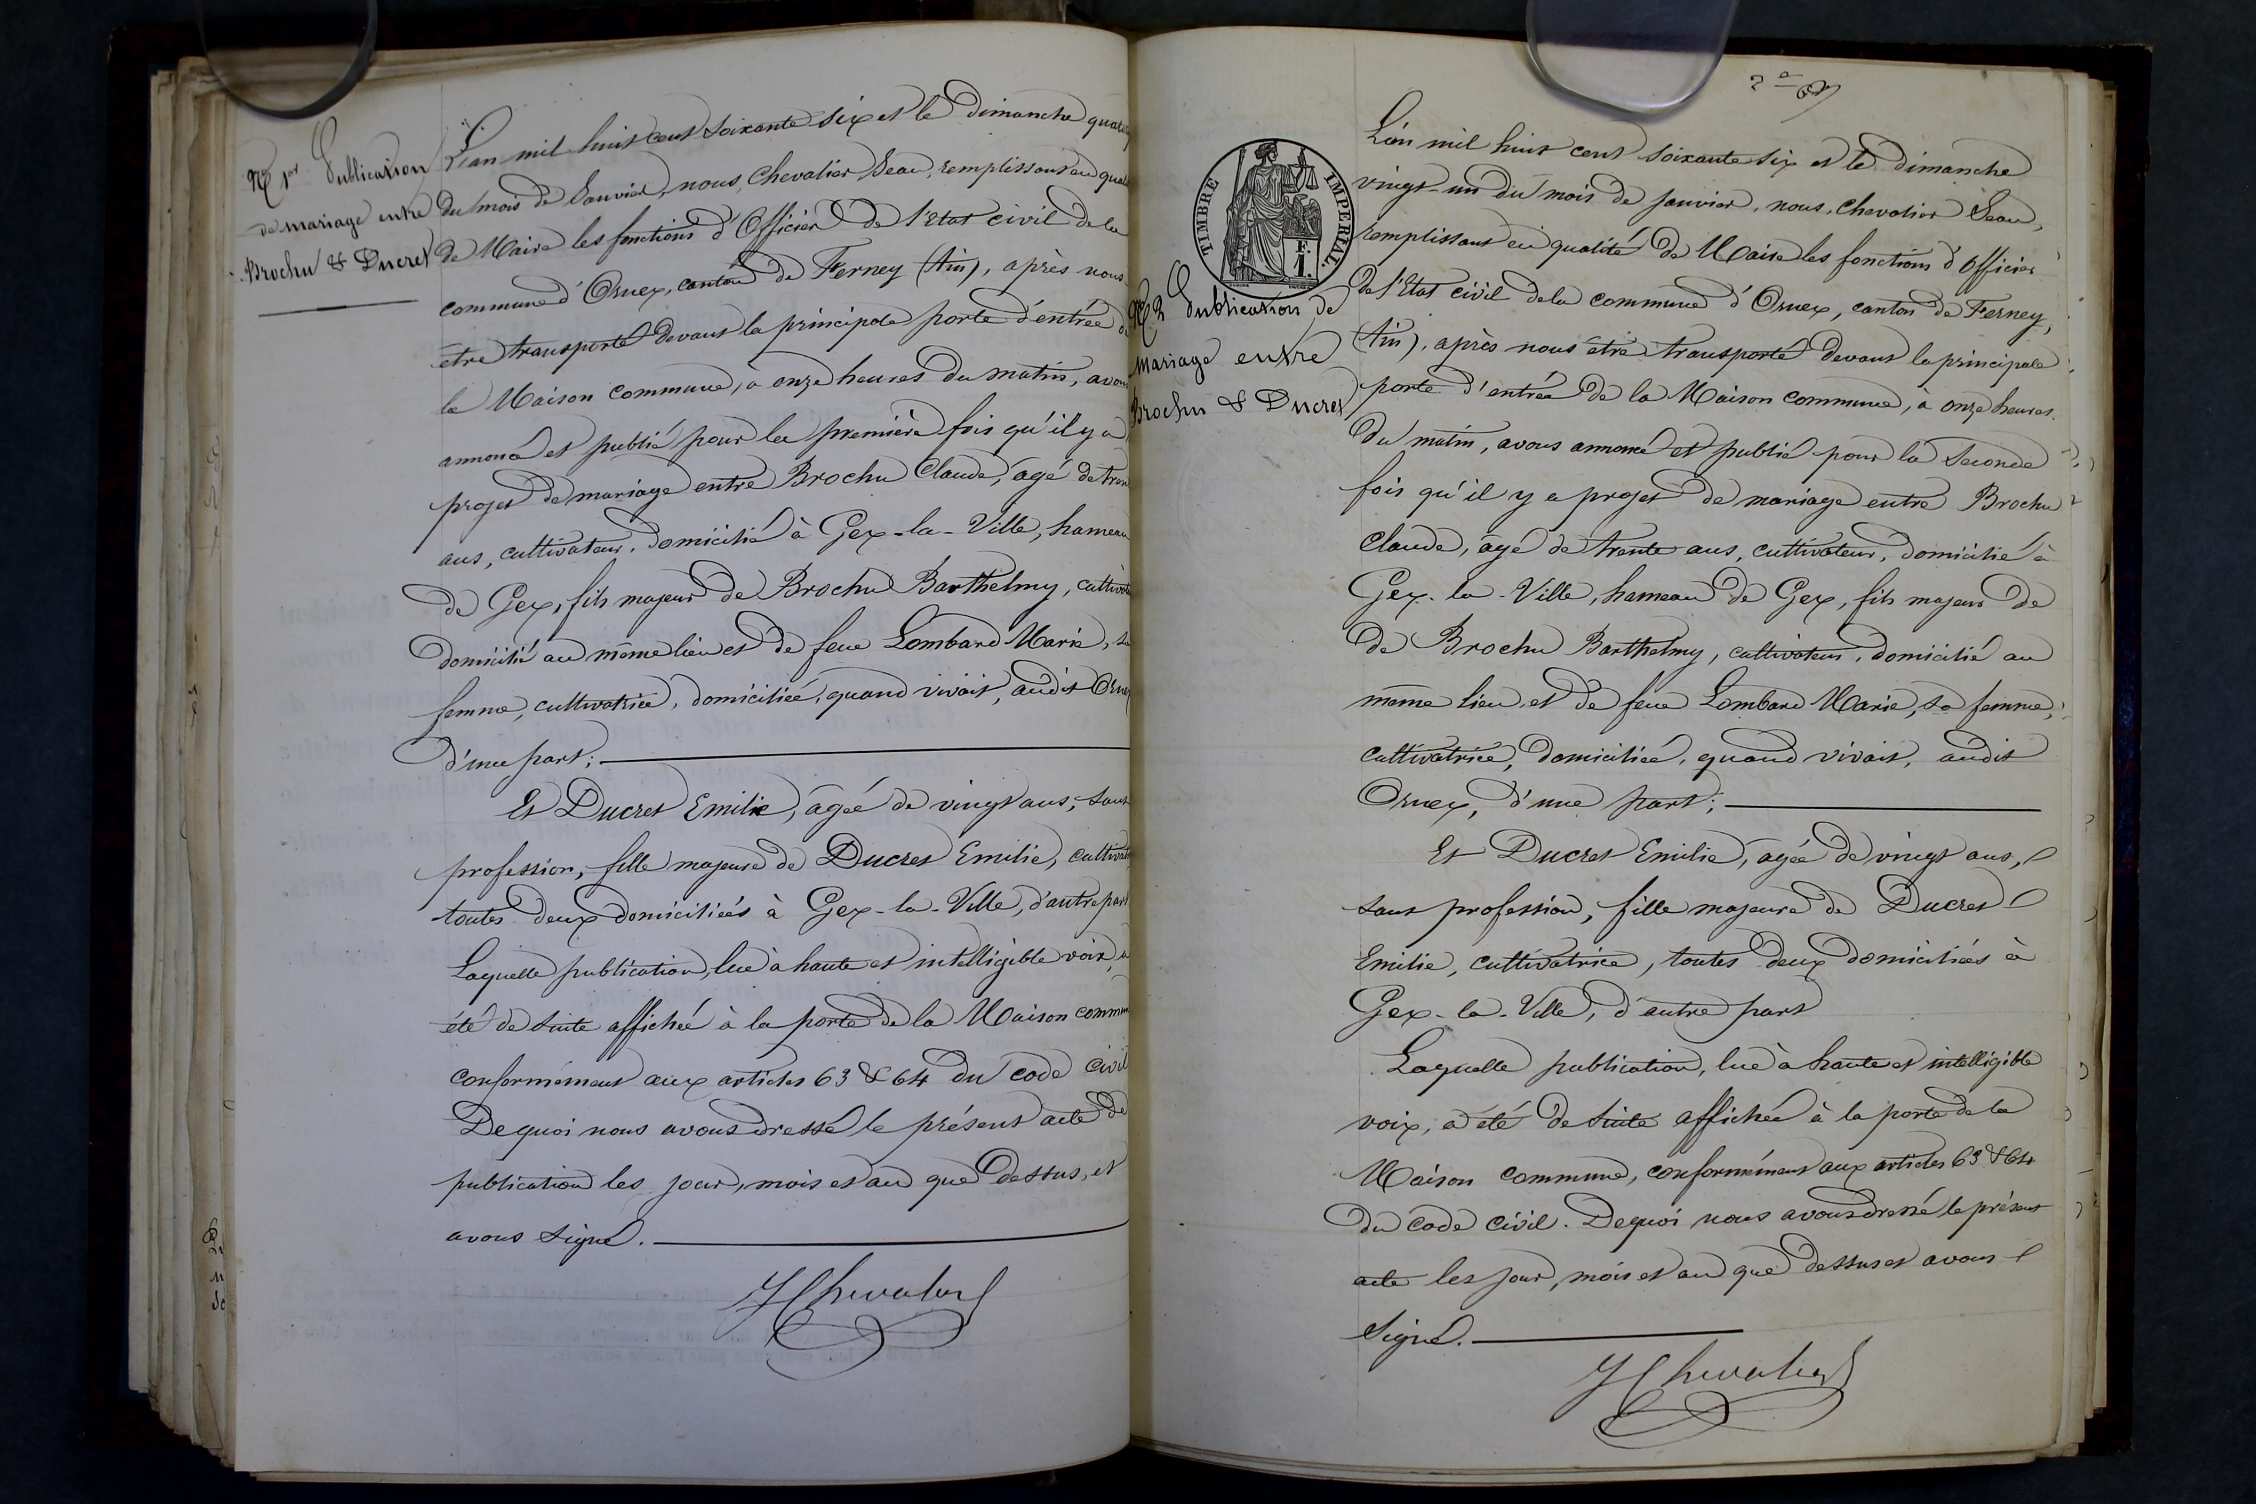 No 1er Publication
de mariage entre
Brochu & Ducret
L'an mil huit cent soixante six et le dimanche quatorze
du mois de Janvier, nous, Chevalier Jean, remplissant en qualité
de Maire les fonctions d'Officier de l'Etat civil de la
commune d'Ornex, canton de Ferney (Ain), après nous
être transporté devant la principale porte d'entrée de
la Maison commune, à onze heures du matin, avons
annoncé et publié pour la première fois qu'il y a
projet de mariage entre Brochu Claude, âgé de trente
ans, cultivateur, domicilié à Gex-la-Ville, hameau
de Gex, fils majeur de Brochu Barthelmy, cultivateur
domicilié au même lieu et de feue Lombard Marie, sa
femme, cultivatrice, domiciliée, quand vivait, audit Ornex
d'une part;
Et Ducret Emilie, âgée de vingt ans, sans
profession, fille majeure de Ducret Emilie, cultivatrice
toutes deux domiciliées à Gex-la-Ville, d'autre part
Laquelle publication, lue à haute et intelligible voix, a
été de suite affichée à la porte de la Maison commune
conformément aux articles 63 & 64 du code civil
De quoi nous avons dressé le présent acte de
publication les jour, mois et an que dessus, et
avons signé.
J Chevalier
2e
TIMBRE IMPERIAL
F.
1.
No 2 Publication de
mariage entre
Brochu & Ducret
L'an mil huit cent soixante six et le dimanche
vingt-un du mois de janvier, nous, Chevalier Jean,
remplissant en qualité de Maire les fonctions d'Officier
de l'Etat civil de la commune d'Ornex, canton de Ferney,
(Ain), après nous être transporté devant la principale
porte d'entrée de la Maison commune, à onze heures
du matin, avons annoncé et publié pour la seconde
fois qu'il y a projet de mariage entre Brochu
Claude, âgé de trente ans, cultivateur, domicilié à
Gex-la-Ville, hameau de Gex, fils majeur de
de Brochu Barthelmy, cultivateur, domicilié au
même lieu et de feue Lombard Marie, sa femme,
cultivatrice, domiciliée, quand vivait, audit
Ornex, d'une part;
Et Ducret Emilie, âgée de vingt ans,
sans profession, fille majeure de Ducret
Emilie, cultivatrice, toutes deux domiciliées à
Gex-la-Ville, d'autre part
Laquelle publication, lue à haute et intelligible
voix, a été de suite affichée à la porte de la
Maison commune, conformément aux articles 63 & 64
du code civil. De quoi nous avons dressé le présent
acte les jour, mois et an que dessus et avons
signé.
J Chevalier